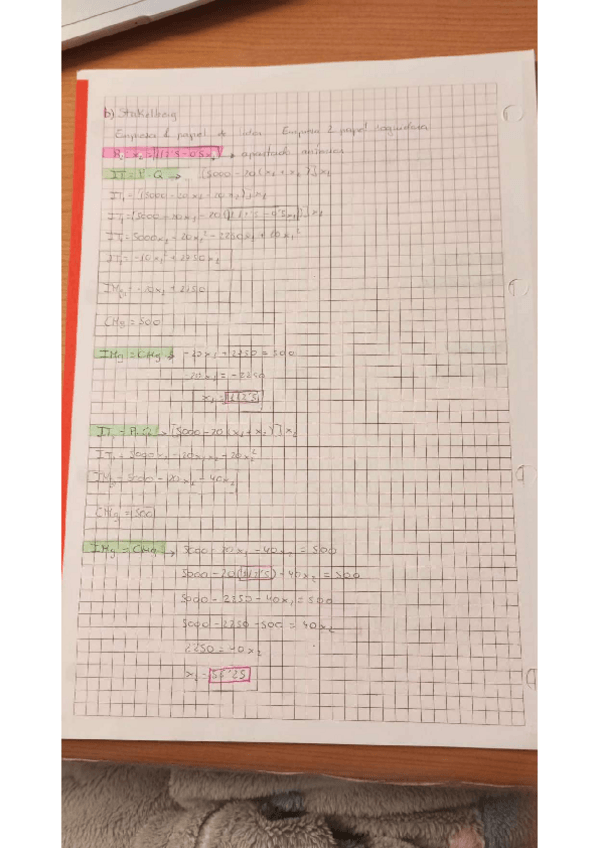 b) Stackelberg
Empresa 1 papel de líder Empresa 2 papel seguidora
R₂: x₂ = 112'5 - 0'5x₁ → apartado anterior
IT = P·Q → [5000 - 20(x₁ + x₂)]x₁
IT₁ = [5000 - 20x₁ - 20x₂]x₁
IT₁ = [5000 - 20x₁ - 20(112'5 - 0'5x₁)]x₁
IT₁ = 5000x₁ - 20x₁² - 2250x₁ + 10x₁²
IT₁ = -10x₁² + 2750x₁
IMg₁ = -20x₁ + 2750
CMg = 500
IMg = CMg → -20x₁ + 2750 = 500
-20x₁ = -2250
x₁ = 112'5
IT = P·Q → [5000 - 20(x₁ + x₂)]x₂
IT₂ = 5000x₂ - 20x₁x₂ - 20x₂²
IMg = 5000 - 20x₁ - 40x₂
CMg = 500
IMg = CMg → 5000 - 20x₁ - 40x₂ = 500
5000 - 20(112'5) - 40x₂ = 500
5000 - 2250 - 40x₂ = 500
5000 - 2250 - 500 = 40x₂
2250 = 40x₂
x₂ = 56'25